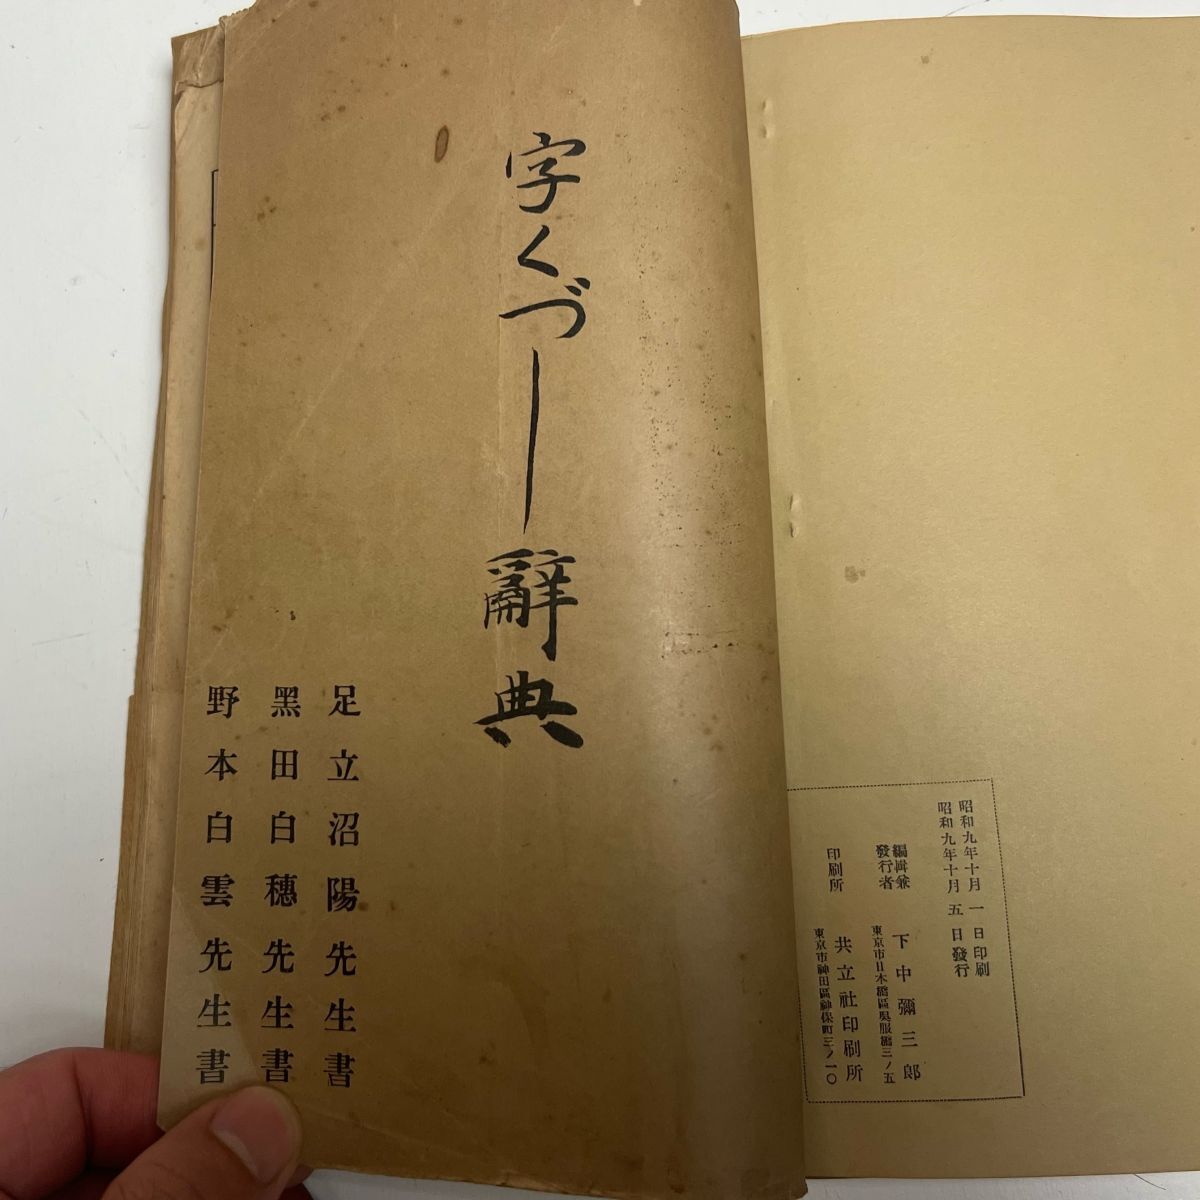 昭和九年十月一日印刷
昭和九年十月五日發行
編輯兼
發行者
下中彌三郎
東京市日本橋區吳服橋三ノ五
印刷所
共立社印刷所
東京市神田區神保町三ノ一〇
字くづし辭典
足立沼陽先生書
黑田白穗先生書
野本白雲先生書